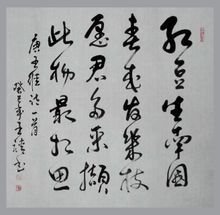 红豆生南国
春来發幾枝
愿君多采擷
此物最相思
唐王维诗一首